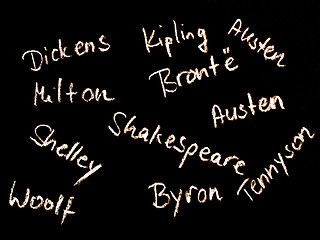 Dickens
Kipling
Austen
Milton
Brontë
Austen
Shelley
Shakespeare
Tennyson
Woolf
Byron